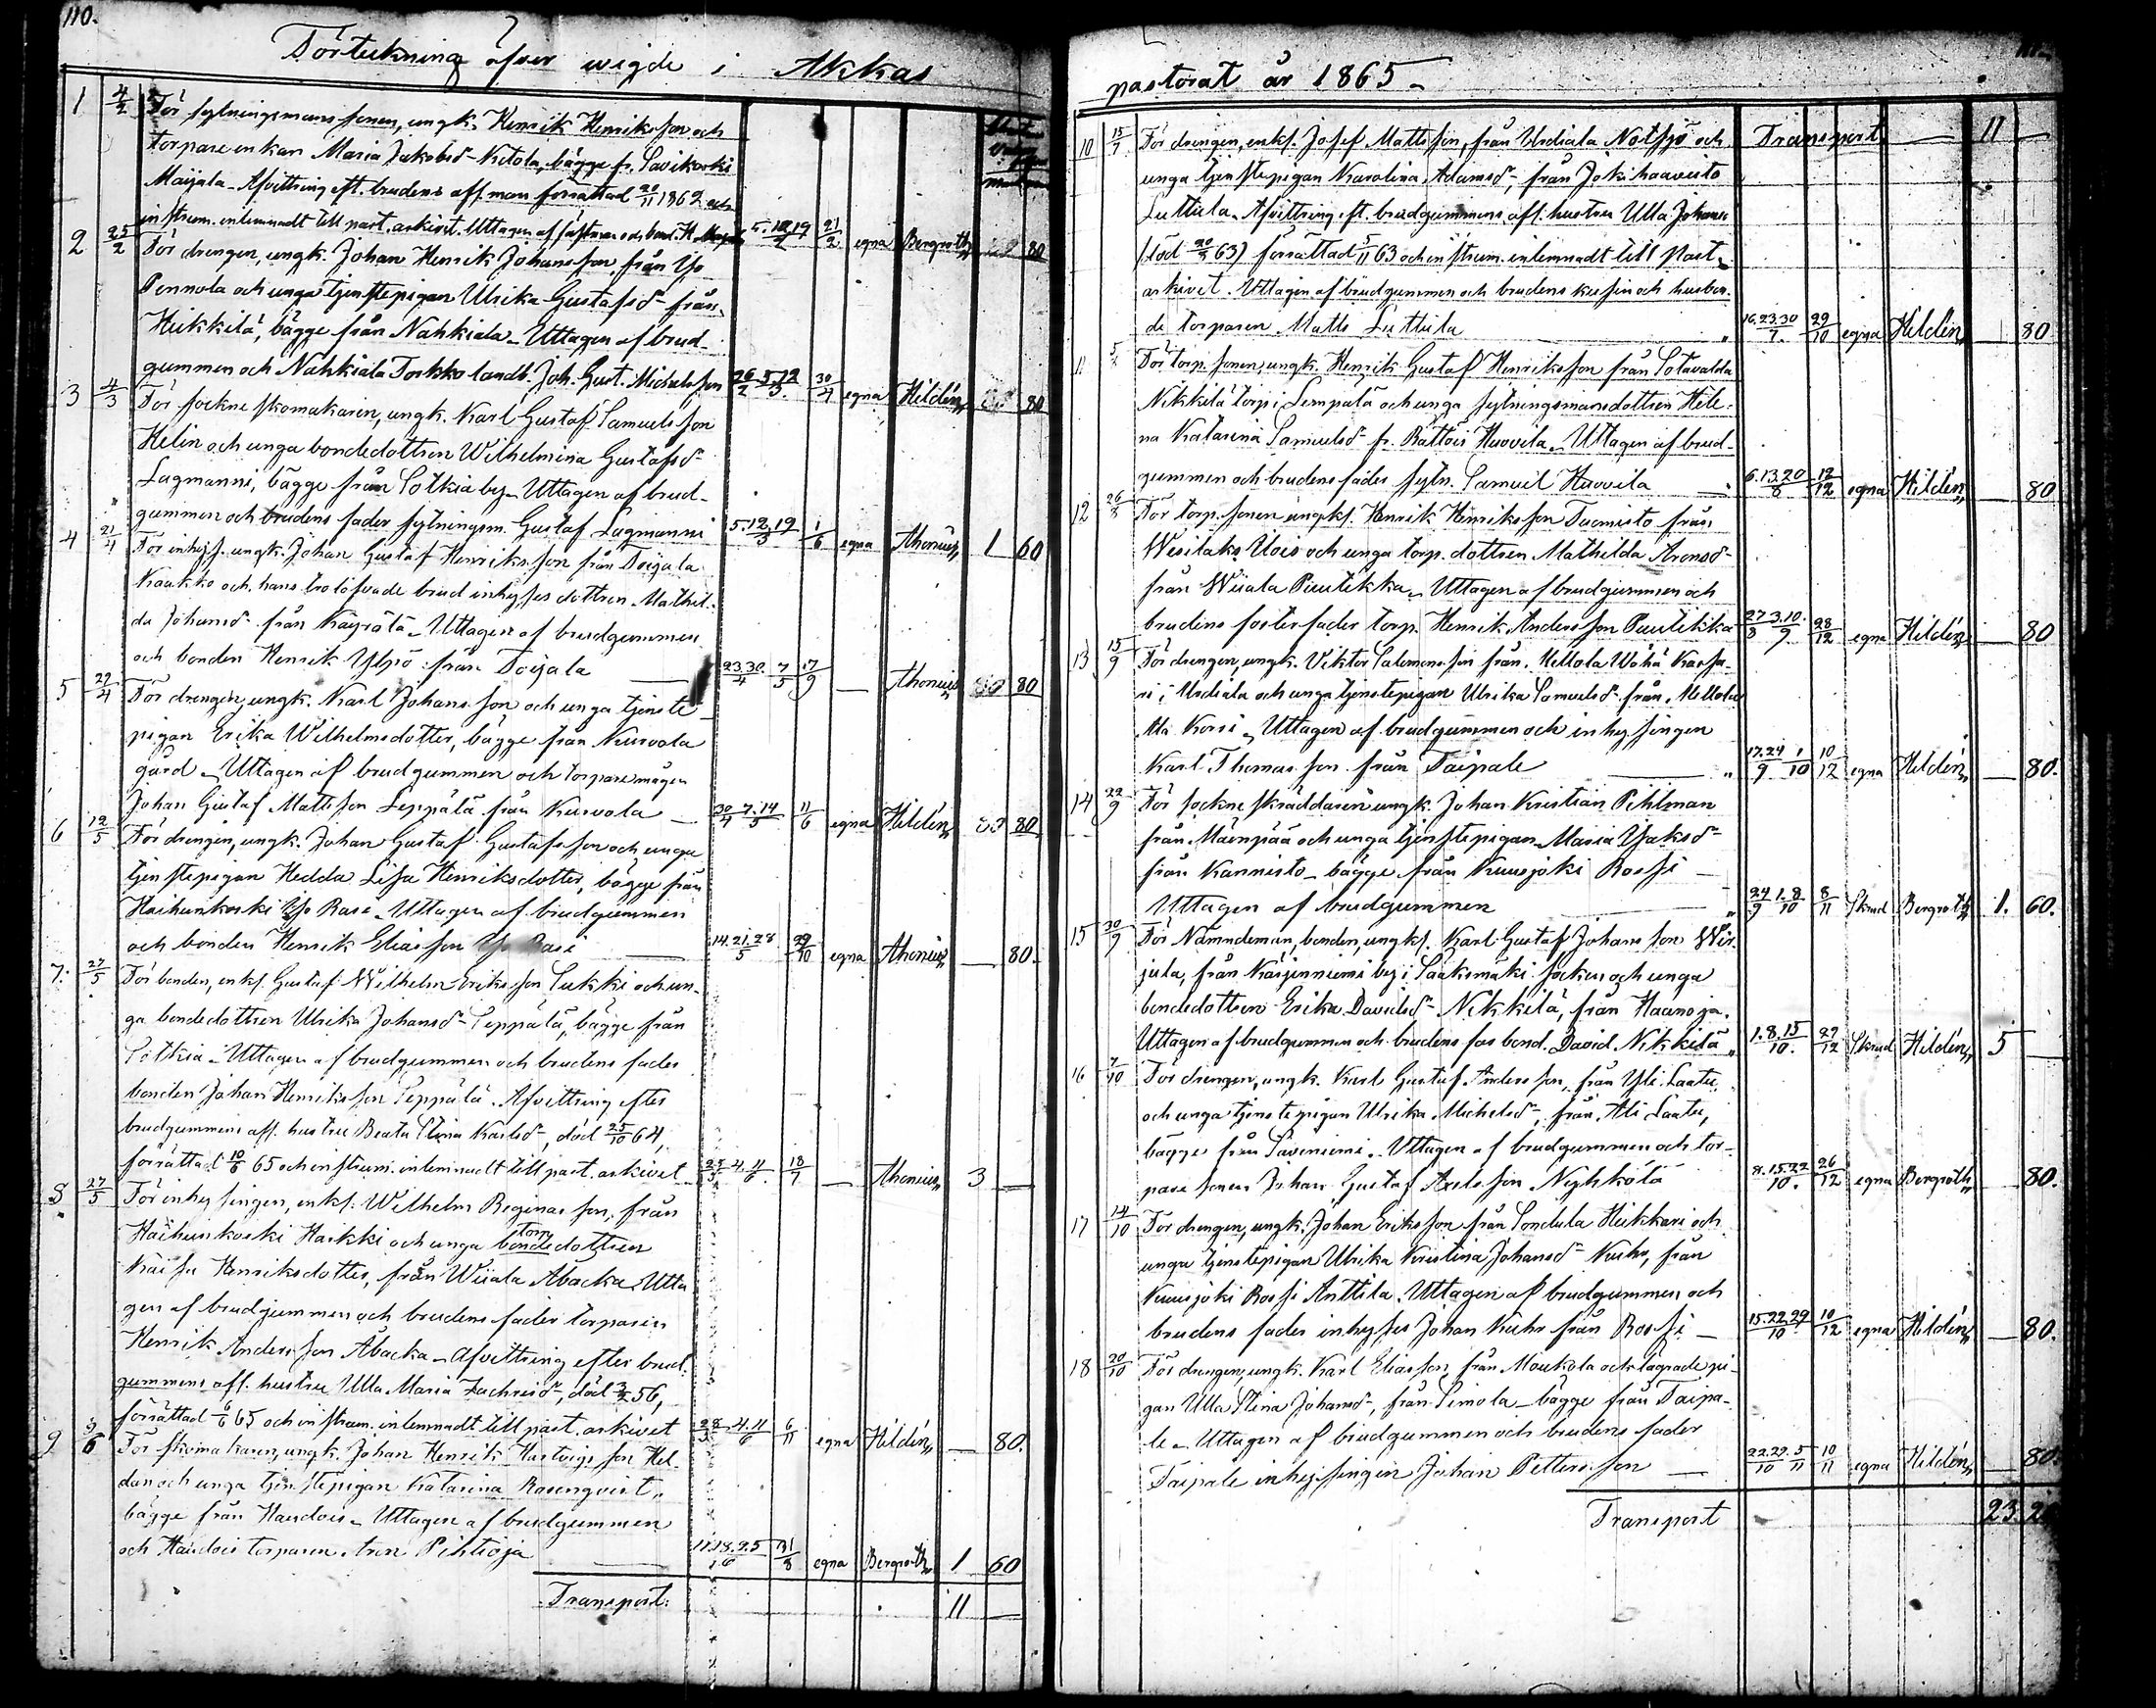 110.
Förtekning öfver wigde i Akkas
1 4/2 För sytningsmans sonen, ungk. Henrik Henriksson och
torpare enkan Maria Jakobsd- Kitola, bägge fr. Savikoski
Maijala. Afvittring eft. brudens afl. man förrättad 20/11 1862 och
instrum. inlemnadt till past. arkivet. Uttagen af fästman och bond. H. 5.12.19/2 21/2 egna Bergroth 80
2 25/2 För drengen, ungk. Johan Henrik Johansson, från Yso
Pennola och unga tjenstepigan Ulrika Gustafsd- från
Heikkilä, bägge från Nahkiala. Uttagen af brud-
gummen och Nahkiala Torkko landb. Joh. Gust. Michelsson 26/2 5.12/3. 30/4 egna Hildén 80
3 4/3 För sockne skomakaren, ungk. Karl Gustaf Samuelsson
Helin och unga bondedottren Wilhelmina Gustafsd-
Lagmanni, bägge från Sotkia by. Uttagen af brud-
gummen och brudens fader sytningsm. Gustaf Lagmanni 5.12.19/3 1/6 egna Thorcius 1 60
4 21/4 För inhys. s. ungk. Johan Gustaf Henriksson från Toijala
Kaakko och hans trolofvade brud inhyses dottren Mathil-
da Johansd- från Käyrölä. Uttagen af brudgummen
och bonden Henrik Ylpö från Toijala 23.30/4 7/5 17/9 — 80
5 27/4 För drengen, ungk. Karl Johansson och unga tjenste-
pigan Erika Wilhelmsdotter, bägge från Kurvola
gård. Uttagen af brudgummen och torparemågen
Johan Gustaf Mattsson Leppälä från Kurvola 30/4 7.14/5 11/6 egna Hildén 80
6 12/5 För drengen, ungk. Johan Gustaf Gustafsson och unga
tjenstepigan Hedda Lisa Henriksdotter, bägge från
Haihunkoski Yso Rasi. Uttagen af brudgummen
och bonden Henrik Eliasson Yso Rasi 14.21.28/5 29/10 egna — 80.
7. 27/5 För bonden, enkl. Gustaf Wilhelm Eriksson Sukki och un-
ga bondedottren Ulrika Johansd- Seppälä, bägge från
Sotkia. Uttagen af brudgummen och brudens fader
bonden Johan Henriksson Seppälä. Afvittring efter
brudgummens afl. hustru Beata Stina Karlsd-, död 25/10 64,
förrättad 10/6 65 och instrum. inlemnadt till past. arkivet 28/5. 4.11/6. 18/7 — 3 —
8 27/5 För inhysingen, enkl. Wilhelm Reginasson, från
Haihunkoski Haikki och unga torp bondedottren
Kaisa Henriksdotter, från Wiiala Åbacka. Utta-
gen af brudgummen och brudens fader torparen
Henrik Andersson Åbacka. Afvittring efter brud-
gummens afl. hustru Ulla Maria Zachrisd-, död 56,
förrättad 6/6 65 och instrum. inlemnadt till past. arkivet 28/5 4.11/6 6/11 egna Hildén — 80.
9 3/6 För skomakaren, ungk. Johan Henrik Hartvigsson Hel-
dan och unga tjenstepigan Katarina Rosenqvist,
bägge från Haudois. Uttagen af brudgummen
och Haudois torparen Pihtioja 11.18.25/6 31/8 egna Bergroth 1 60
Transport. 11 —
pastorat år 1865.
Transport — 11 —
10 15/7 För drengen, enkl. Josef Mattsson, från Urdiala Notsjö och
unga tjenstepigan Karolina Adamsd-, från Jokihaavisto
Luttula. Afvittring eft. brudgummens afl. hustru Ulla Johansd-
(död 63) förrättad 5/11 63 och instrum. inlemnadt till Past.
arkivet. Uttagen af brudgummen och brudens kusin och husbon-
de torparen Matts Luttula 16.23.30/7. 29/10 egna Hildén 80
11 5/8 För torp. sonen, ungk. Henrik Gustaf Henriksson från Sotavalda
Nikkilä torp i Lempälä och unga sytningsmansdottren Hele-
na Katarina Samuelsd- fr. Rättöis Huovila. Uttagen af brud-
gummen och brudens fader sytn. Samuel Huovila 6.13.20/8 12/12 egna Hildén — 80
12 26/8 För torp. sonen ungk. Henrik Henriksson Tuomisto från
Wesilaks Ulois och unga torp. dottren Mathilda Aronsd-
från Wiiala Puutikka. Uttagen af brudgummen och
brudens fosterfader torp. Henrik Andersson Puutikka 27/8 3.10./9. 28/12 egna Hildén — 80
13 15/9 För drengen, ungk. Viktor Salomonsson från Mellola Wähä Karsa-
ri i Urdiala och unga tjenstepigan Ulrika Samuelsd- från Mellola
Ala Korsi. Uttagen af brudgummen och inhysingen
Karl Thomasson från Taipale 17.24/9 1/10 10/12 egna Hildén — 80.
14 22/9 För sockne skräddaren ungk. Johan Kristian Pihlman
från Mäenpää och unga tjenstepigan Maria Isaksd-
från Kannisto - bägge från Kuusjoki Rossi —
Uttagen af brudgummen 24/9 1.8/10 8/11 Skrud Bergroth 1. 60.
15 30/9 För Nämndeman, bonden, ungk. Karl Gustaf Johansson Wir-
jula, från Kärjenniemi by i Sääksmäki socken och unga
bondedottren Erika Davidsd- Nikkilä, från Haanoja.
Uttagen af brudgummen och brudens far bond. David Nikkilä 1.8.15/10. 27/12 Skrud Hildén 5 —
16 7/10 För drengen, ungk. Karl Gustaf Andersson, från Yli Laatu
och unga tjenstepigan Ulrika Michelsd-, från Ali Laatu,
bägge från Saveniemi. Uttagen af brudgummen och tor-
pare sonen Johan Gustaf Axelsson Nyhkölä 8.15.22/10. 26/12 egna Bergroth 80.
17 14/10 För drengen, ungk. Johan Eriksson från Sondula Heikkari och
unga tjenstepigan Ulrika Kristina Johansd- Kuhr, från
Kuusjoki Rossi Anttila. Uttagen af brudgummen och
brudens fader inhyses Johan Kuhr från Rossi — 15.22.29/10 10/12 egna Hildén — 80.
18 20/10 För drengen, ungk. Karl Eliasson, från Moukola och lägrade pi-
gan Ulla Stina Johansd-, från Simola - bägge från Taipa-
le. Uttagen af brudgummen och brudens fader
Taipale inhysingen Johan Pettersson — 22.29./10 5/11 10/11 egna Hildén — 80.
Transport 23. 20